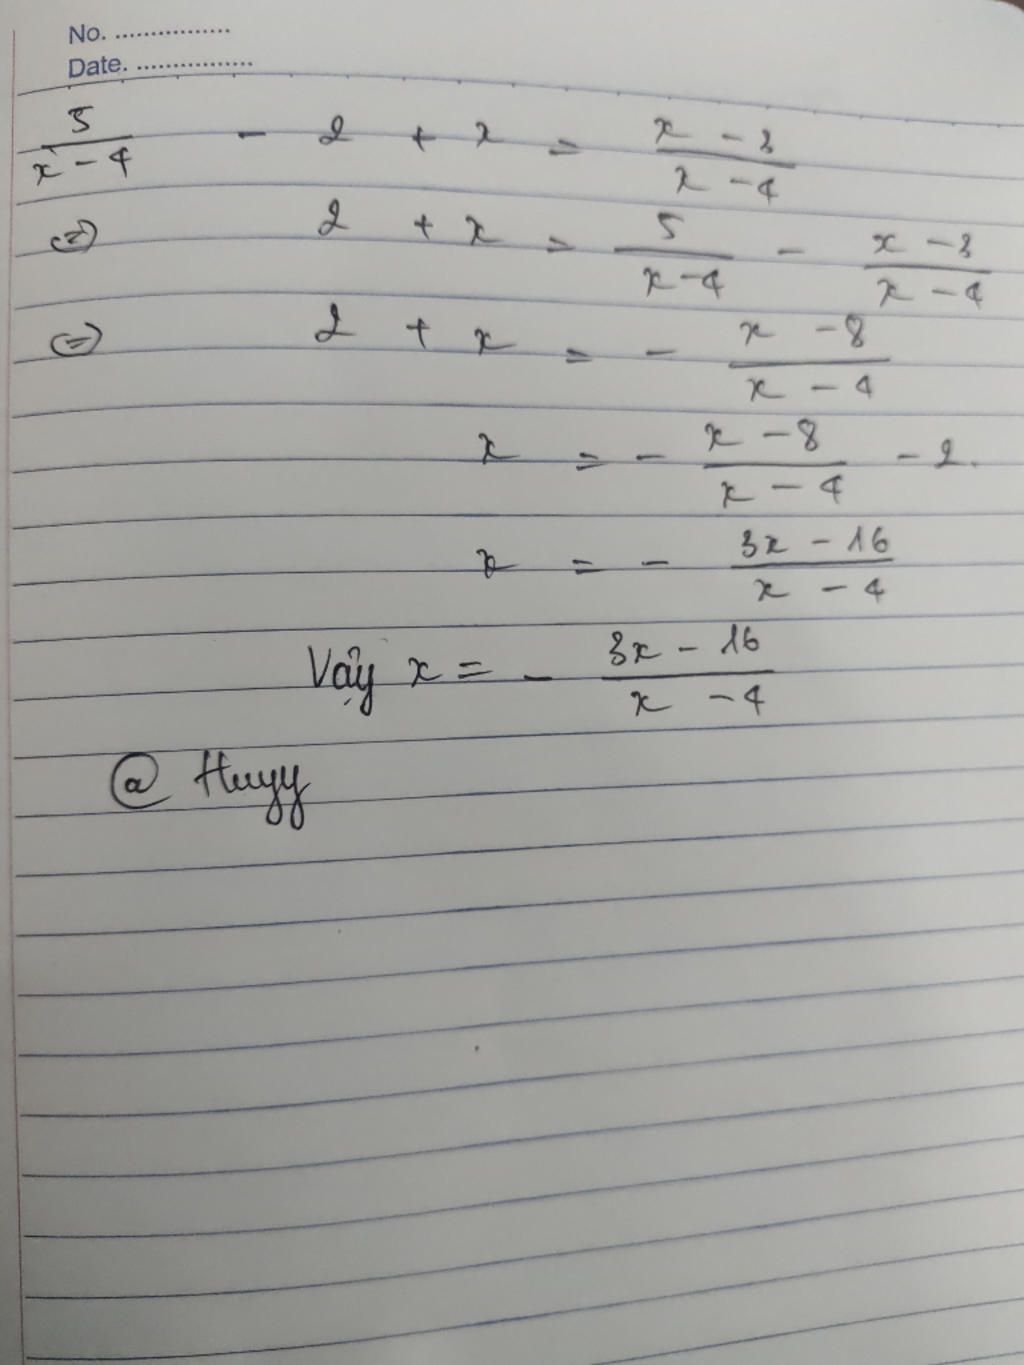 No. ................
Date. ................
5/(x - 4) - 2 + x = (x - 3)/(x - 4)
(=) 2 + x = 5/(x - 4) - (x - 3)/(x - 4)
(=) 2 + x = - (x - 8)/(x - 4)
x = - (x - 8)/(x - 4) - 2.
x = - (3x - 16)/(x - 4)
Vậy x = - (3x - 16)/(x - 4)
@ Huyy